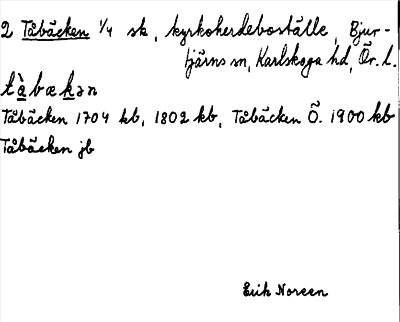 2 Tåbäcken 1/4 sk, kyrkoherdeboställe, Bjur-
tjärns sn, Karlskoga hd, Ör. l.
tå̀bækən
Tåbäcken 1704 kb, 1802 kb, Tåbäcken Ö. 1900 kb
Tåbäcken jb
Erik Noreen